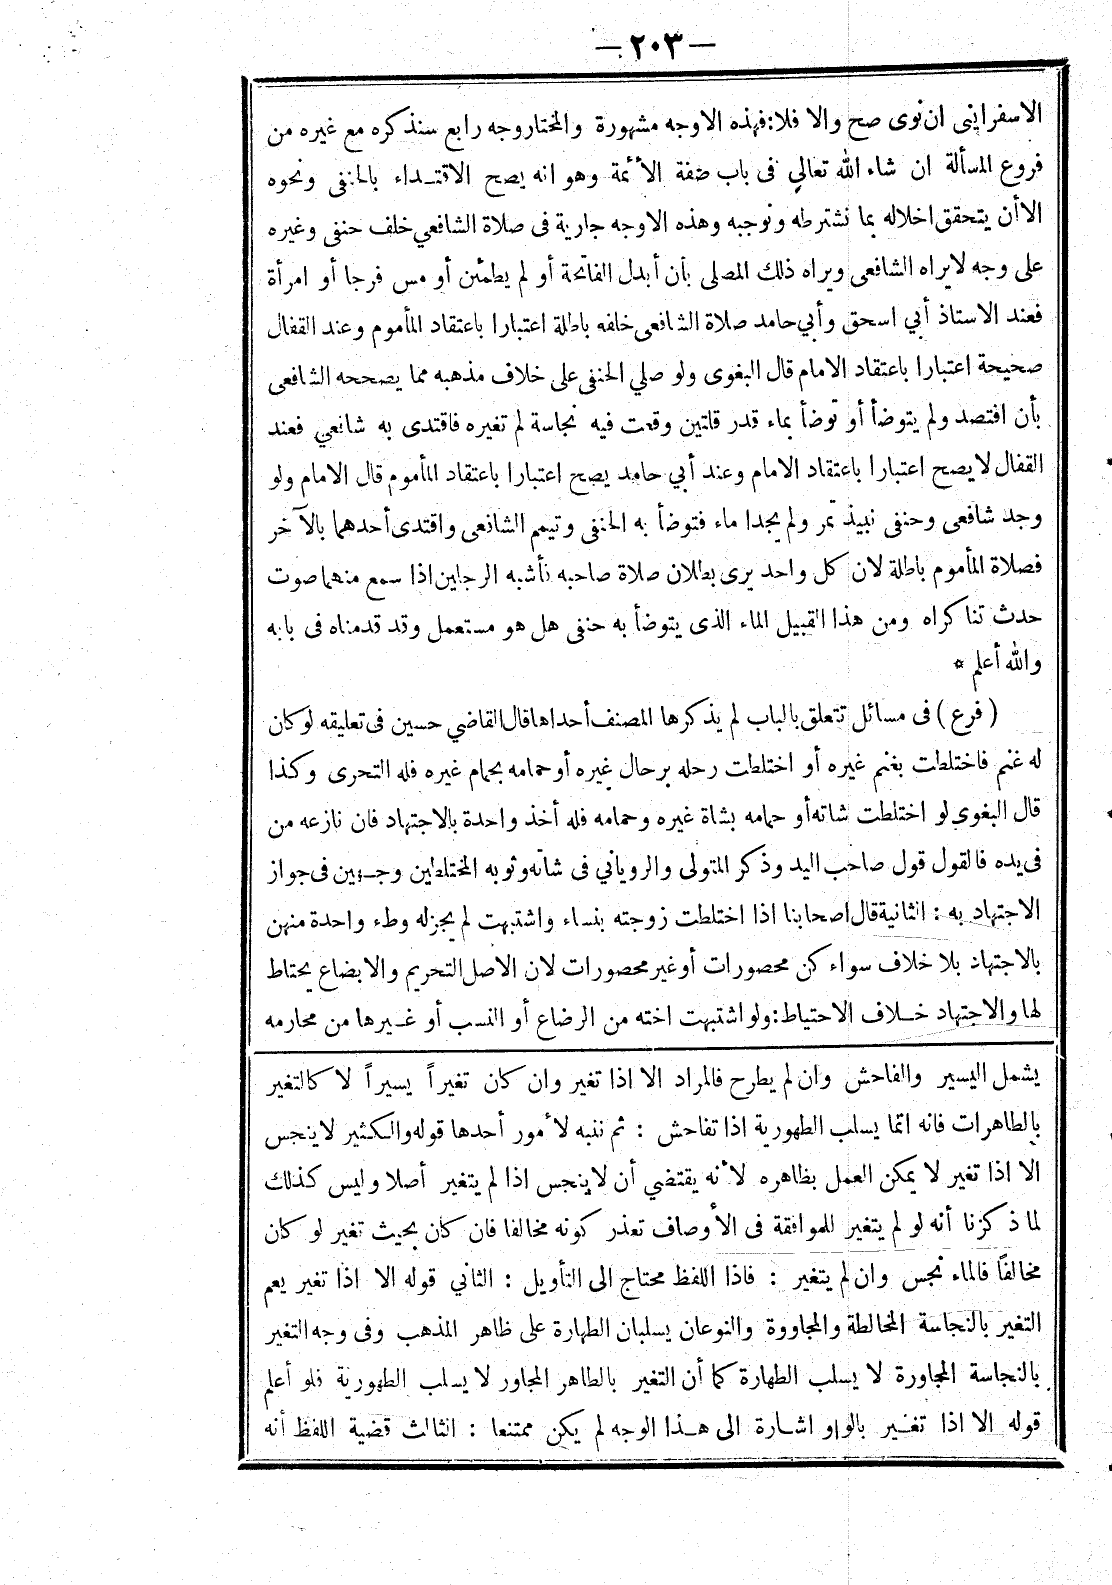 — ٢٠٣ —
الاسفرايني ان نوى صح والا فلا: فهذه الاوجه مشهورة والمختار وجه رابع سنذكره مع غيره من
فروع المسألة ان شاء الله تعالي في باب صفة الأئمة وهو انه يصح الاقتـداء بالحنفى ونحوه
الا أن يتحقق اخلاله بما نشترطه ونوجبه وهذه الاوجه جارية فى صلاة الشافعي خلف حنفى وغيره
على وجه لا يراه الشافعي ويراه ذلك المصلى بأن أبدل الفاتحة أو لم يطمئن أو مس فرجا أو امرأة
فعند الاستاذ أبي اسحق وأبي حامد صلاة الشافعى خلفه باطلة اعتبارا باعتقاد المأموم وعند القفال
صحيحة اعتبارا باعتقاد الامام قال البغوى ولو صلي الحنفى على خلاف مذهبه مما يصححه الشافعى
بأن افتصد ولم يتوضأ أو توضأ بماء قدر قلتين وقعت فيه نجاسة لم تغيره فاقتدى به شافعي فعند
القفال لا يصح اعتبارا باعتقاد الامام وعند أبي حامد يصح اعتبارا باعتقاد المأموم قال الامام ولو
وجد شافعى وحنفى نبيذ تمر ولم يجدا ماء فتوضأ به الحنفى وتيمم الشافعى واقتدى أحدهما بالآخر
فصلاة المأموم باطلة لان كل واحد يرى بطلان صلاة صاحبه فأشبه الرجلين اذا سمع منهما صوت
حدث تناكراه ومن هذا القبيل الماء الذى يتوضأ به حنفى هل هو مستعمل وقد قدمناه فى بابه
والله أعلم *
( فرع ) فى مسائل تتعلق بالباب لم يذكرها المصنف أحداها قال القاضي حسين فى تعليقه لو كان
له غنم فاختلطت بغنم غيره أو اختلطت رحله برحال غيره أو حمامه بحمام غيره فله التحرى وكذا
قال البغوي لو اختلطت شاته أو حمامه بشاة غيره وحمامه فله أخذ واحدة بالاجتهاد فان نازعه من
فى يده فالقول قول صاحب اليد وذكر المتولى والروياني فى شاته وثوبه المختلطين وجـهين فى جواز
الاجتهاد به : الثانية قال اصحابنا اذا اختلطت زوجته بنساء واشتبهت لم يجز له وطء واحدة منهن
بالاجتهاد بلا خلاف سواء كن محصورات أو غير محصورات لان الاصل التحريم والابضاع يحتاط
لها والاجتهاد خـلاف الاحتياط: ولو اشتبهت اخته من الرضاع أو النسب أو غـيرها من محارمه
يشمل اليسير والفاحش وان لم يطرح فالمراد الا اذا تغير وان كان تغيراً يسيراً لا كالتغير
بالطاهرات فانه انما يسلب الطهورية اذا تفاحش : ثم ننبه لأمور أحدها قوله والكثير لا ينجس
الا اذا تغير لا يمكن العمل بظاهره لأنه يقتضي أن لا ينجس اذا لم يتغير أصلا وليس كذلك
لما ذكرنا أنه لو لم يتغير للموافقة فى الأوصاف تعذر كونه مخالفا فان كان بحيث تغير لو كان
مخالفاً فالماء نجس وان لم يتغير : فاذا اللفظ محتاج الى التأويل : الثاني قوله الا اذا تغير يعم
التغير بالنجاسة المخالطة والمجاووة والنوعان يسلبان الطهارة على ظاهر المذهب وفى وجه التغير
بالنجاسة المجاورة لا يسلب الطهارة كما أن التغير بالطاهر المجاور لا يسلب الطهورية فلو أعلم
قوله الا اذا تغـير بالواو اشـارة الى هـذا الوجه لم يكن ممتنعا : الثالث قضية اللفظ أنه